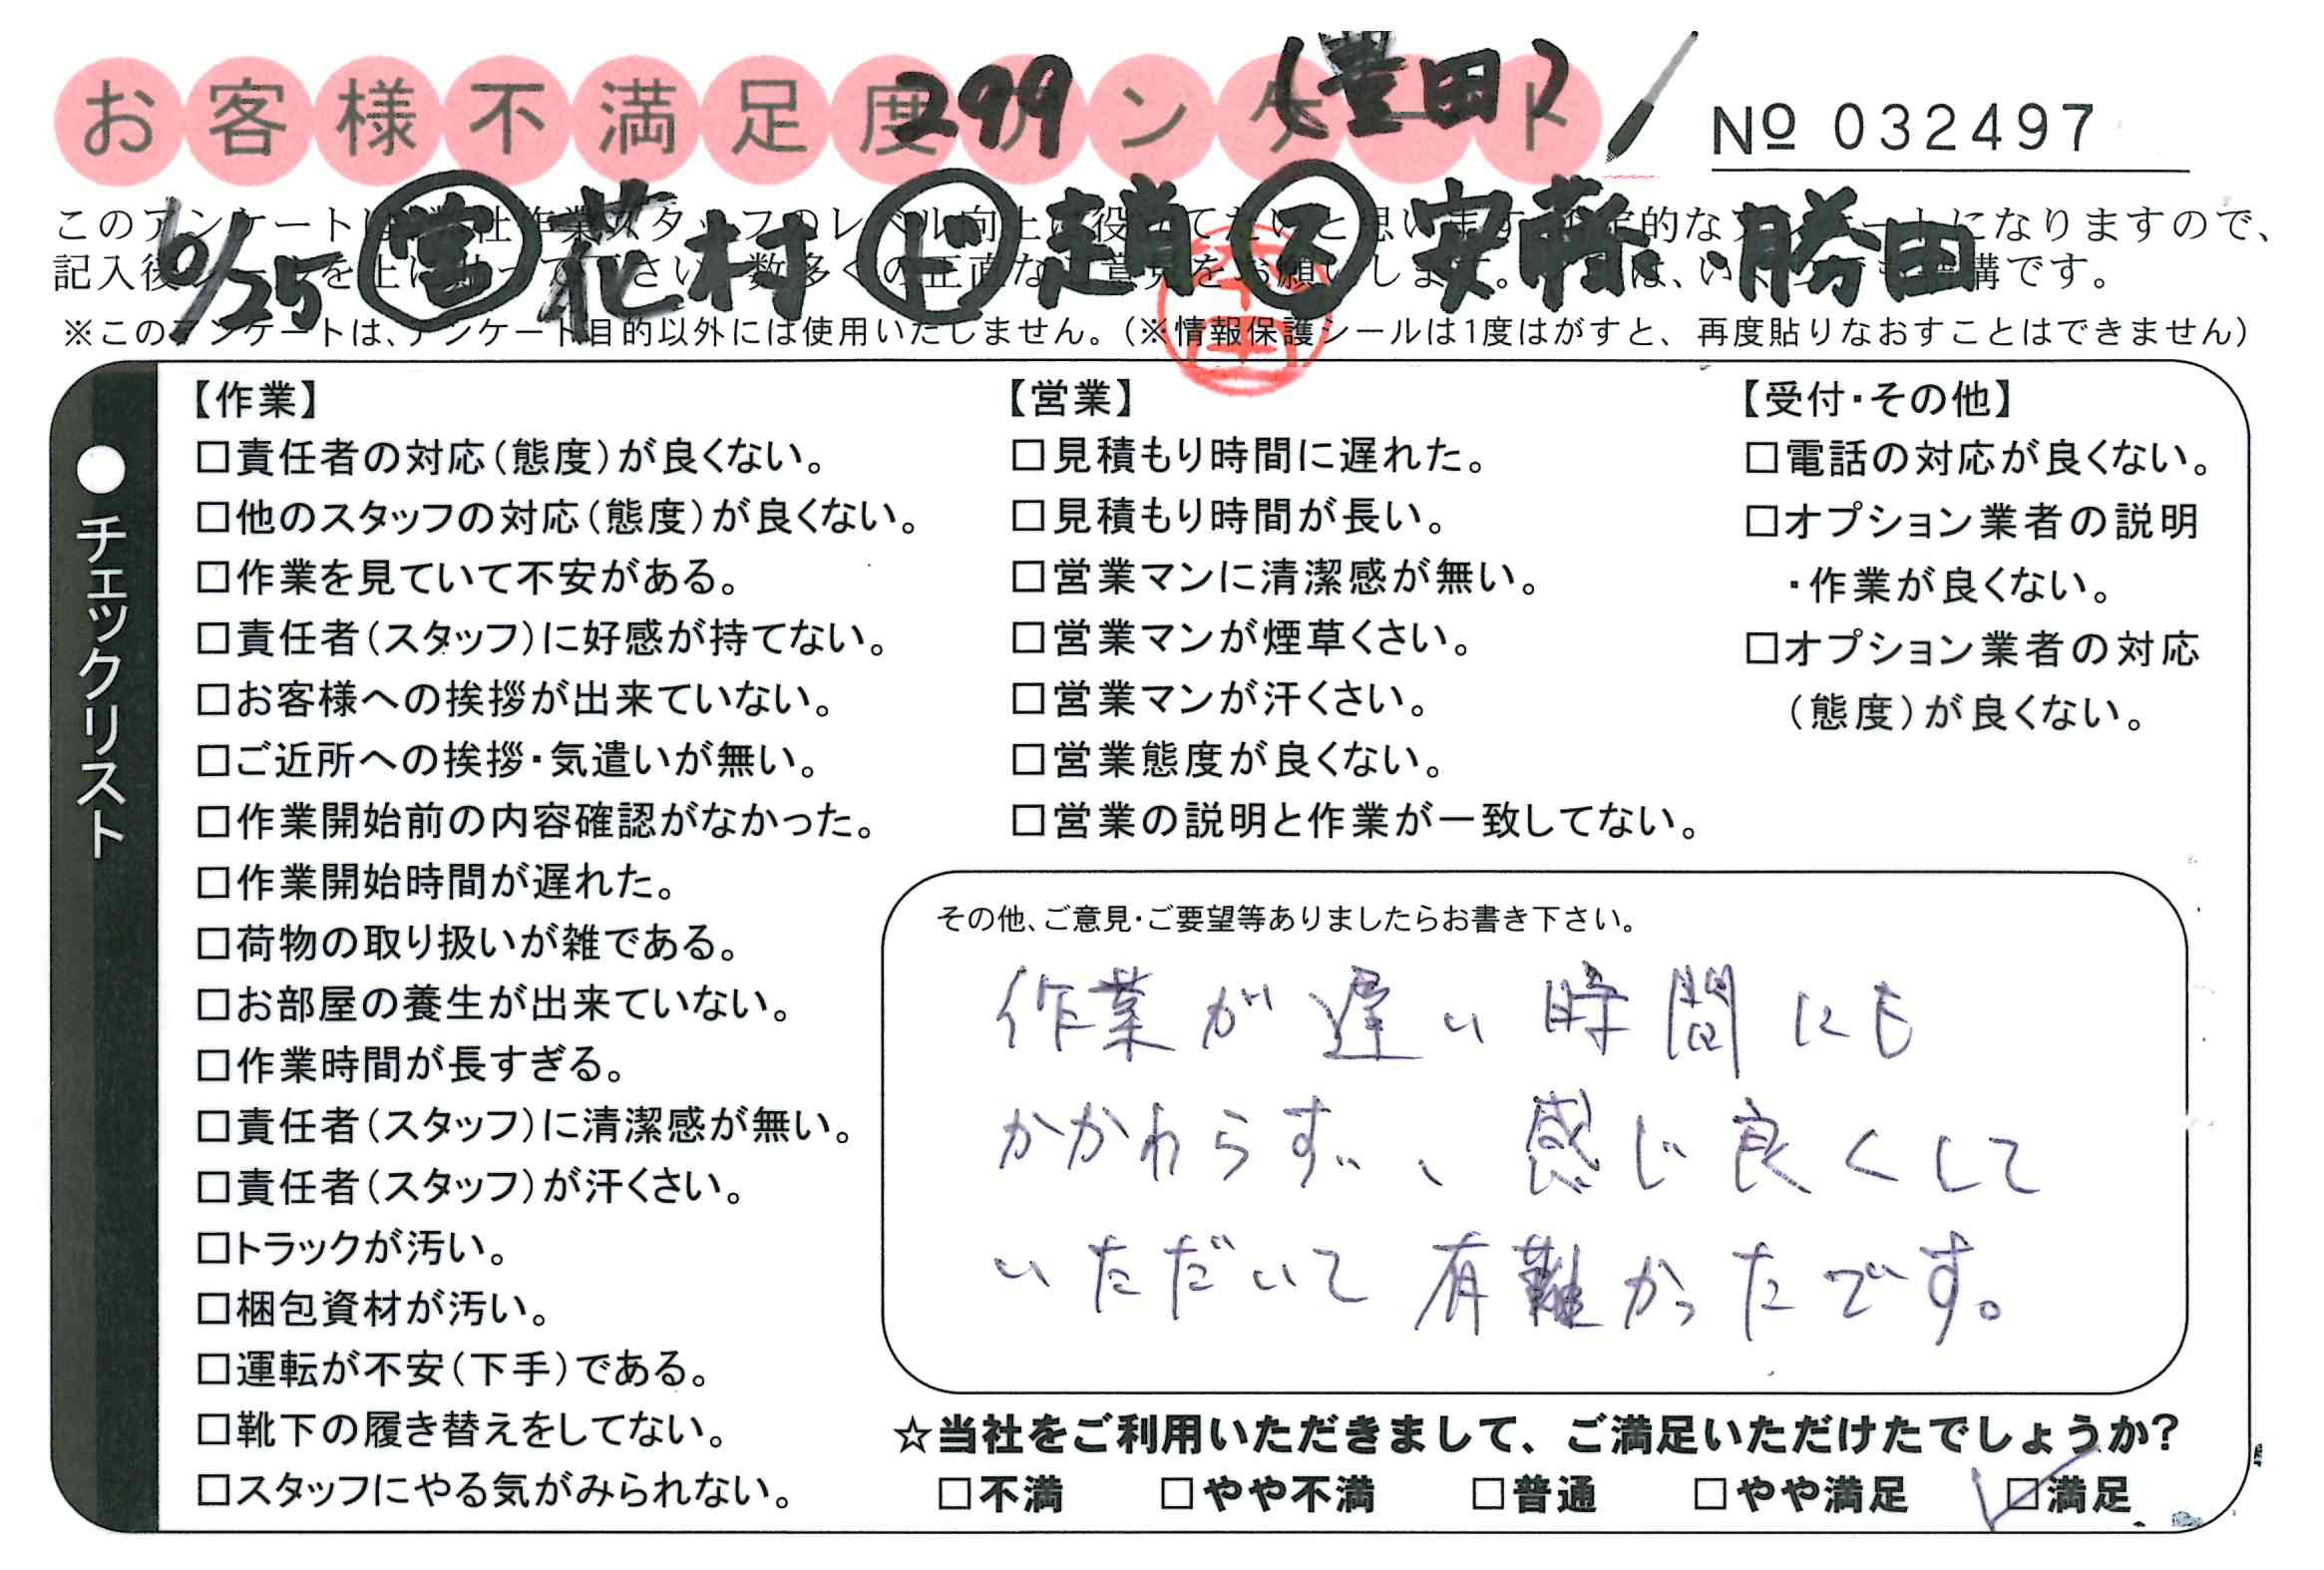 お客様不満足度アンケート
299
(豊田)
№ 032497
このアンケートは
記入後
10/25 営 花村 ド 趙 ス 安藤・勝田
※このアンケートは、アンケート目的以外には使用いたしません。(※情報保護シールは1度はがすと、再度貼りなおすことはできません)
●チェックリスト
【作業】
□責任者の対応(態度)が良くない。
□他のスタッフの対応(態度)が良くない。
□作業を見ていて不安がある。
□責任者(スタッフ)に好感が持てない。
□お客様への挨拶が出来ていない。
□ご近所への挨拶・気遣いが無い。
□作業開始前の内容確認がなかった。
□作業開始時間が遅れた。
□荷物の取り扱いが雑である。
□お部屋の養生が出来ていない。
□作業時間が長すぎる。
□責任者(スタッフ)に清潔感が無い。
□責任者(スタッフ)が汗くさい。
□トラックが汚い。
□梱包資材が汚い。
□運転が不安(下手)である。
□靴下の履き替えをしてない。
□スタッフにやる気がみられない。
【営業】
□見積もり時間に遅れた。
□見積もり時間が長い。
□営業マンに清潔感が無い。
□営業マンが煙草くさい。
□営業マンが汗くさい。
□営業態度が良くない。
□営業の説明と作業が一致してない。
【受付・その他】
□電話の対応が良くない。
□オプション業者の説明
・作業が良くない。
□オプション業者の対応
(態度)が良くない。
その他、ご意見・ご要望等ありましたらお書き下さい。
作業が遅い時間にも
かかわらず、感じ良くして
いただいて有難かったです。
☆当社をご利用いただきまして、ご満足いただけたでしょうか?
□不満 □やや不満 □普通 □やや満足 ☑満足